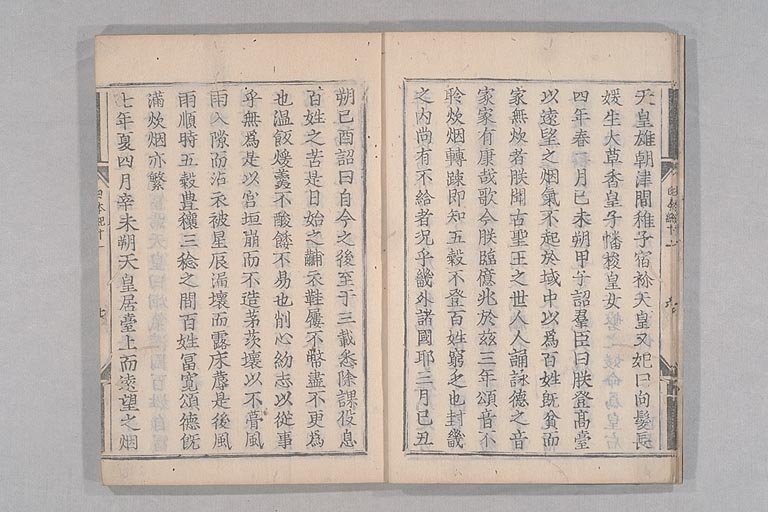 天皇雄朝津間稚子宿祢天皇又妃日向髮長
媛生大草香皇子幡梭皇女
四年春二月己未朔甲子詔羣臣曰朕登髙臺
以遠望之烟氣不起於域中以爲百姓既貧而
家無炊者朕聞古聖王之世人人誦詠德之音
家家有康哉歌今朕臨億兆於茲三年頌音不
聆炊烟轉踈即知五穀不登百姓窮乏也封畿
之内尚有不給者况乎畿外諸國耶三月己丑
朔己酉詔曰自今之後至于三載悉除課役息
百姓之苦是日始之黼衣鞋屨不弊盡不更爲
也温飯煖羹不酸餧不易也削心約志以從事
乎無爲是以宮垣崩而不造茅茨壞以不葺風
雨入隙而沾衣被星辰漏壞而露床蓐是後風
雨順時五穀豊穰三稔之間百姓冨寛頌德既
滿炊烟亦繁
七年夏四月辛未朔天皇居臺上而遠望之烟
日本紀十一